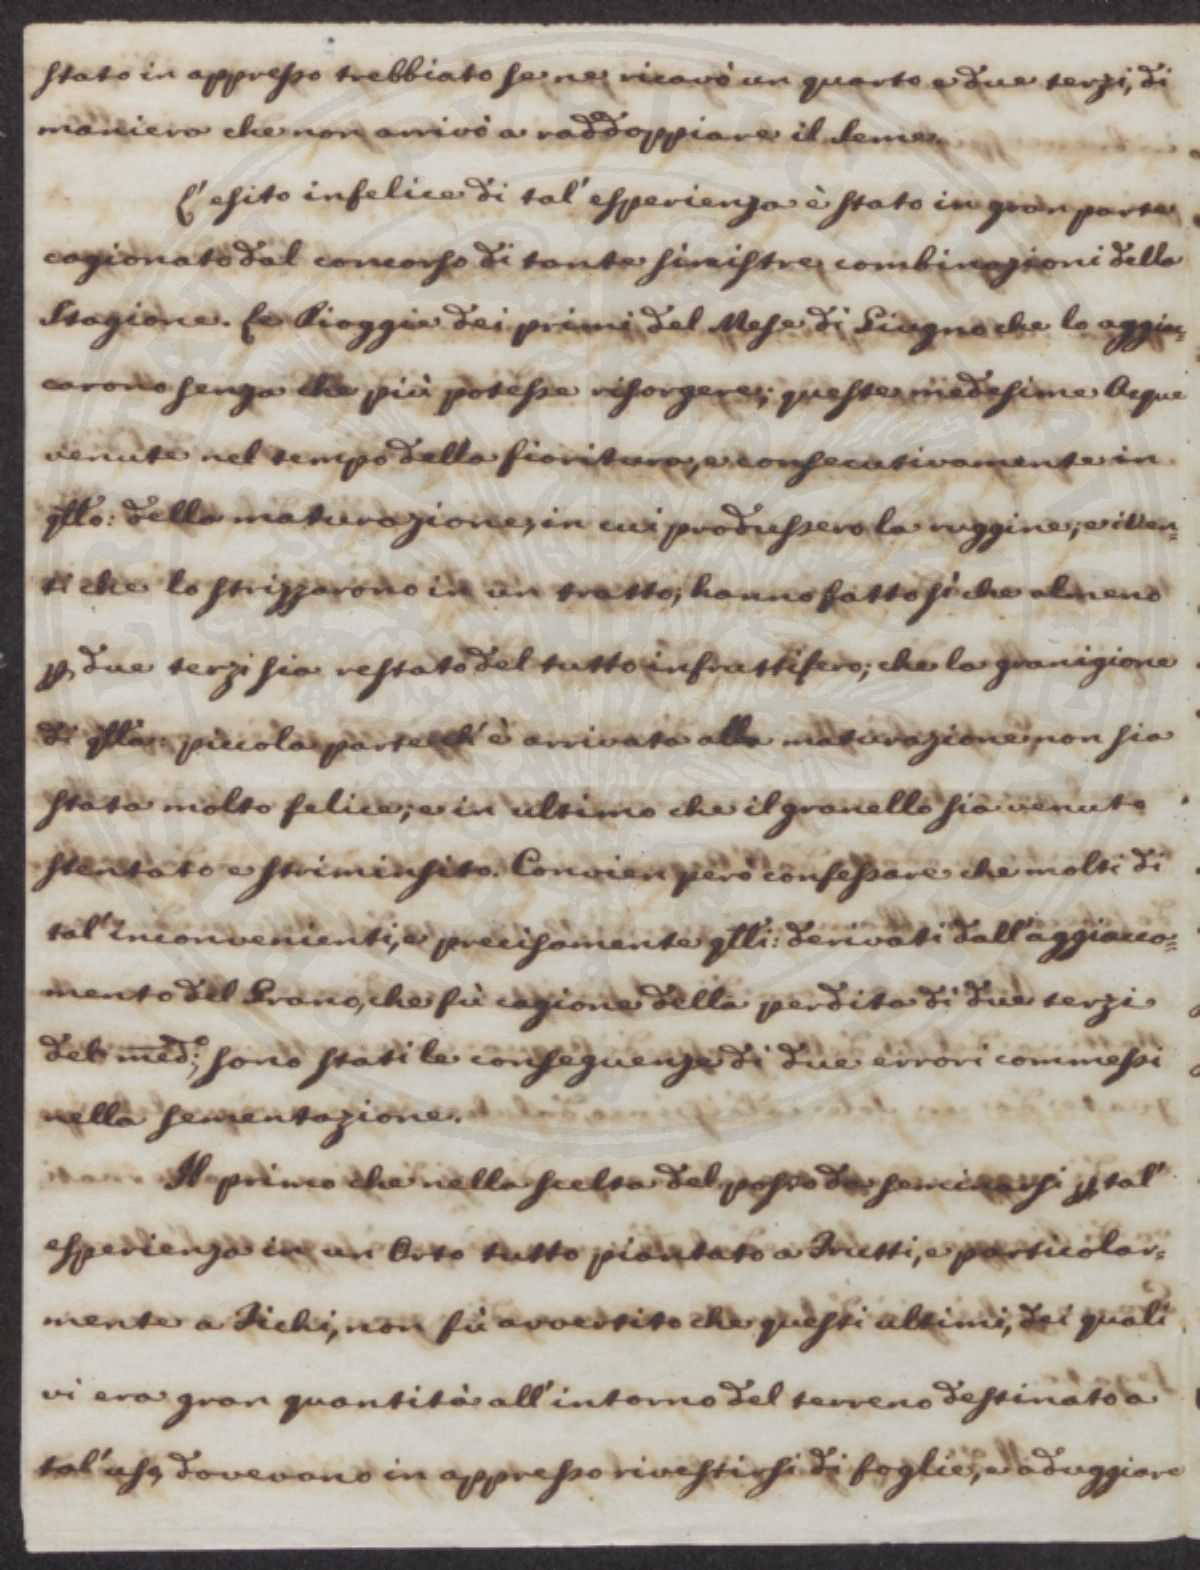 stato in appresso trebbiato se ne ricavò un quarto e due terzi, di
maniera che non arrivò a raddoppiare il seme.
L'esito infelice di tal'esperienza è stato in gran parte
cagionato dal concorso di tante sinistre combinazioni della
Stagione. Le Pioggie dei primi del Mese di Giugno che lo aggiac=
carono senza che più potesse risorgere; queste medesime Acque
venute nel tempo della fioritura, e consecutivamente in
qllo: della maturazione, in cui produssero la ruggine; e i Ven=
ti che lo strizzarono in un tratto; hanno fatto sì che almeno
p due terzi sia restato del tutto infruttifero; che la granigione
di qlla: piccola parte ch'è arrivata alla maturazione non sia
stata molto felice; e in ultimo che il granello sia venuto
stentato e striminsito. Convien però confessare che molti di
tal'inconvenienti, e precisamente qlli: derivati dall'aggiacca=
mento del Grano, che fù cagione della perdita di due terzi
del med:º sono stati le conseguenze di due errori commessi
nella sementazione.
Il primo che nella scelta del posto da seminarsi p tal'
esperienza in un Orto tutto piantato a Frutti, e particolar=
mente a Fichi, non fù avvertito che questi ultimi, dei quali
vi era gran quantità all'intorno del terreno destinato a
tal'uso, dovevano in appresso rivestirsi di foglie, e aduggiare